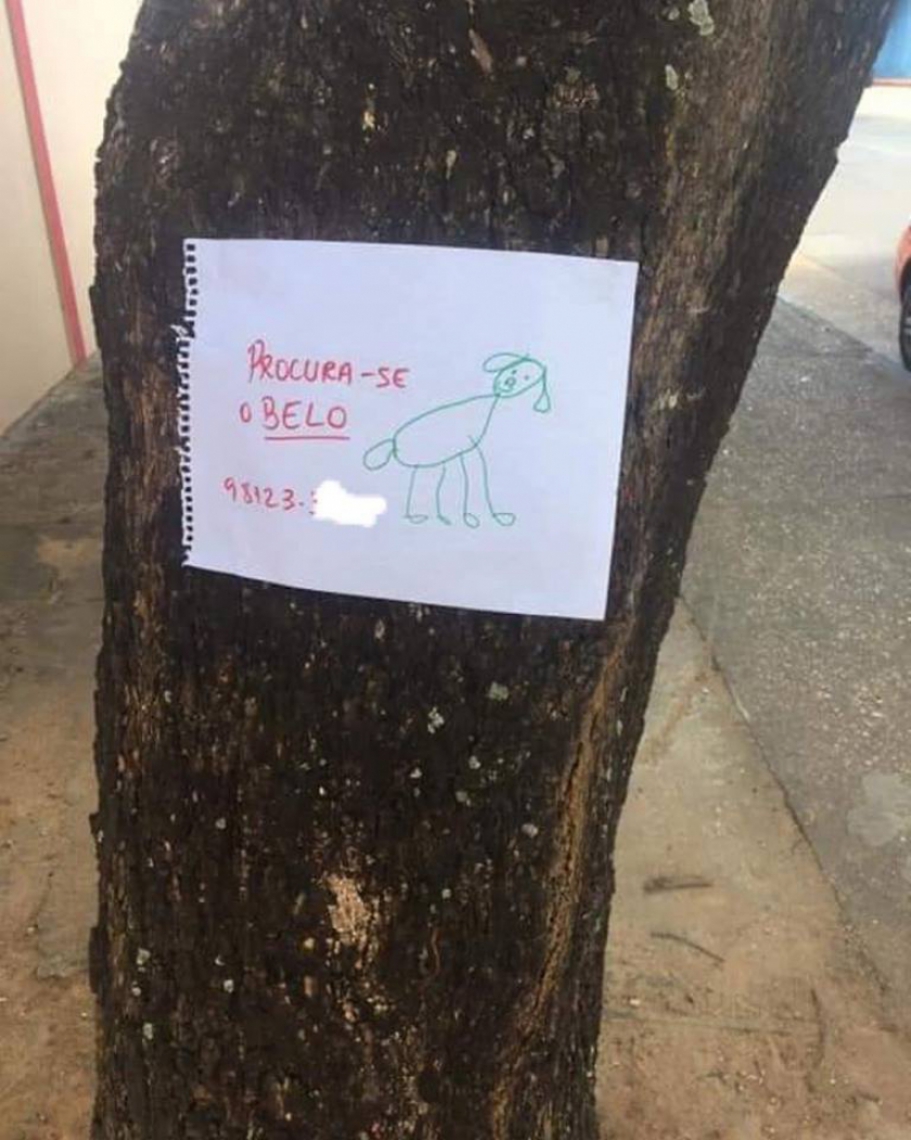 PROCURA-SE
O BELO
98123-